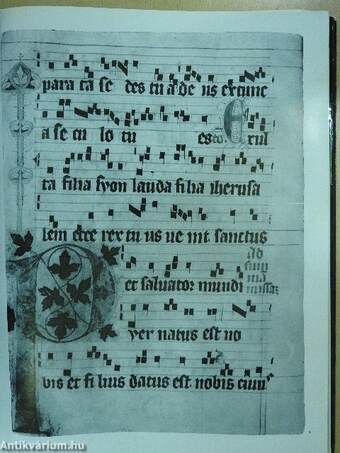 para ta se des tu a de us ex tunc
a se cu lo tu es co. Exul
ta filia syon lauda filia iherusa
lem ecce rex tu us ve nit sanctus
et salvator mundi
ad sum ma missaz
Puer natus est no
bis et fi lius datus est nobis cuius
Antikvárium.hu